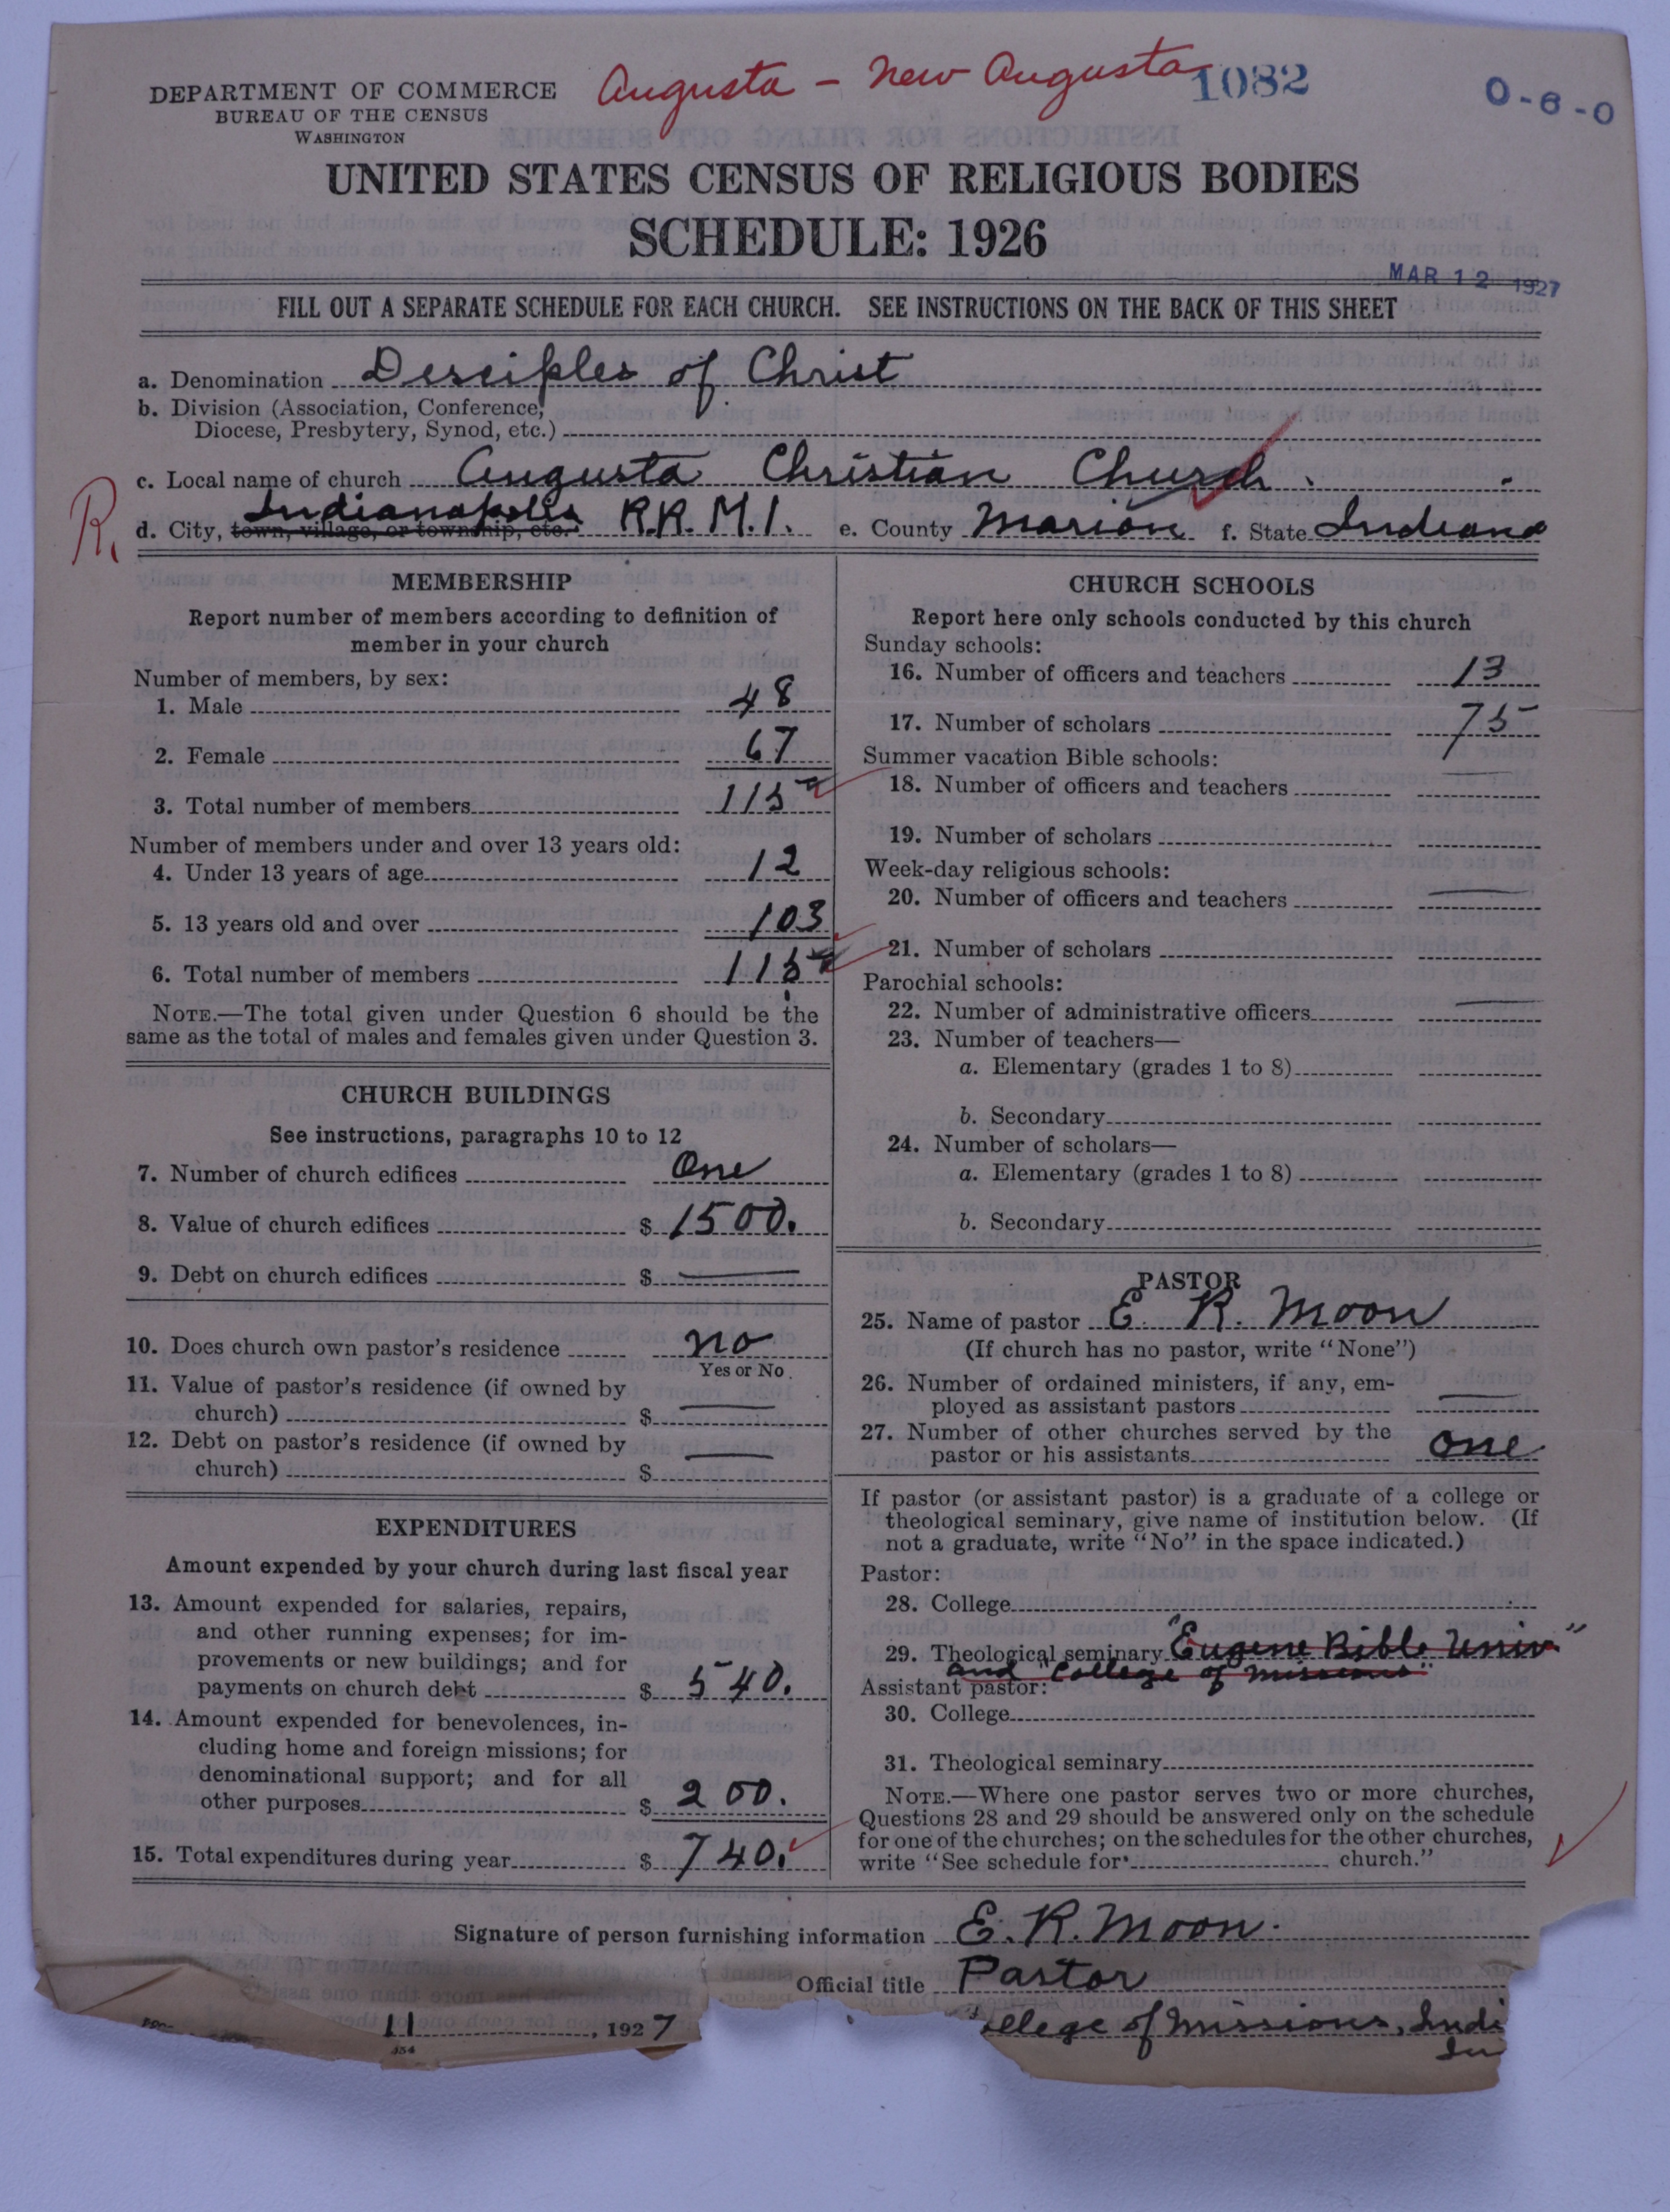 Augusta - New Augusta
1082
0-6-0
DEPARTMENT OF COMMERCE
BUREAU OF THE CENSUS
WASHINGTON
UNITED STATES CENSUS OF RELIGIOUS BODIES
SCHEDULE: 1926
MAR 12 1927
FILL OUT A SEPARATE SCHEDULE FOR EACH CHURCH. SEE INSTRUCTIONS ON THE BACK OF THIS SHEET
a. Denomination Desciples of Christ
b. Division (Association, Conference,
Diocese, Presbytery, Synod, etc.)
c. Local name of church Augusta Christian Church.
R.
d. City, town, village, or township, etc. Indianapolis R.R. M.1. e. County Marion f. State Indiana
MEMBERSHIP
Report number of members according to definition of
member in your church
Number of members, by sex:
1. Male 48
2. Female 67
3. Total number of members 115
Number of members under and over 13 years old:
4. Under 13 years of age 12
5. 13 years old and over 103
6. Total number of members 115
NOTE.—The total given under Question 6 should be the
same as the total of males and females given under Question 3.
CHURCH BUILDINGS
See instructions, paragraphs 10 to 12
7. Number of church edifices One
8. Value of church edifices $ 1500.
9. Debt on church edifices $ —
10. Does church own pastor's residence no
Yes or No
11. Value of pastor's residence (if owned by
church) $ —
12. Debt on pastor's residence (if owned by
church) $ —
EXPENDITURES
Amount expended by your church during last fiscal year
13. Amount expended for salaries, repairs,
and other running expenses; for im-
provements or new buildings; and for
payments on church debt $ 540.
14. Amount expended for benevolences, in-
cluding home and foreign missions; for
denominational support; and for all
other purposes $ 200.
15. Total expenditures during year $ 740.
CHURCH SCHOOLS
Report here only schools conducted by this church
Sunday schools:
16. Number of officers and teachers 13
17. Number of scholars 75
Summer vacation Bible schools:
18. Number of officers and teachers —
19. Number of scholars
Week-day religious schools:
20. Number of officers and teachers —
21. Number of scholars
Parochial schools:
22. Number of administrative officers —
23. Number of teachers—
a. Elementary (grades 1 to 8)
b. Secondary
24. Number of scholars—
a. Elementary (grades 1 to 8)
b. Secondary
PASTOR
25. Name of pastor E. R. Moon
(If church has no pastor, write "None")
26. Number of ordained ministers, if any, em-
ployed as assistant pastors —
27. Number of other churches served by the
pastor or his assistants one
If pastor (or assistant pastor) is a graduate of a college or
theological seminary, give name of institution below. (If
not a graduate, write "No" in the space indicated.)
Pastor:
28. College
29. Theological seminary "Eugene Bible Univ."
and "College of Missions"
Assistant pastor:
30. College
31. Theological seminary
NOTE.—Where one pastor serves two or more churches,
Questions 28 and 29 should be answered only on the schedule
for one of the churches; on the schedules for the other churches,
write "See schedule for church."
Signature of person furnishing information E. R. Moon.
Official title Pastor
11, 1927
ollege of Missions, Indi
In